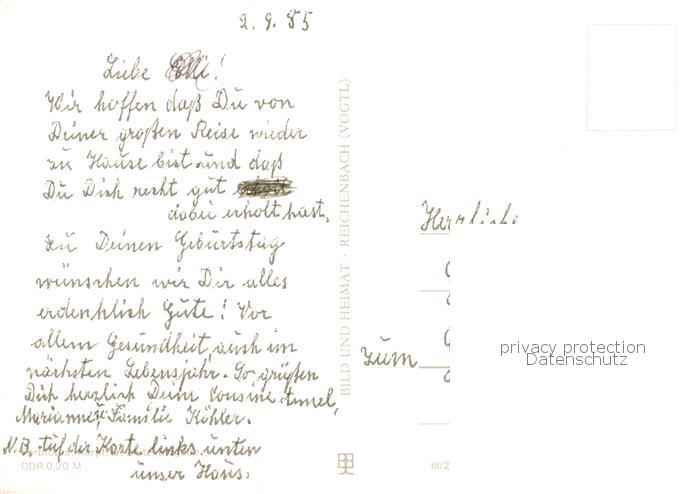 2.9.85
Liebe !
Wir hoffen daß Du von
Deiner großen Reise wieder
zu Hause bist und daß
Du Dich recht gut
dabei erholt hast.
Zu Deinen Geburtstag
wünschen wir Dir alles
erdenklich Gute! Vor
allem Gesundheit, auch im
nächsten Lebensjahr. So grüßen
Dich herzlich Deine Cousine
Marianne, Familie Köhler.
N.B. Auf der Karte links unten
unser Haus.
DDR 0,20 M
BILD UND HEIMAT · REICHENBACH (VOGTL)
III/2
Herzliche
zum
privacy protection
Datenschutz